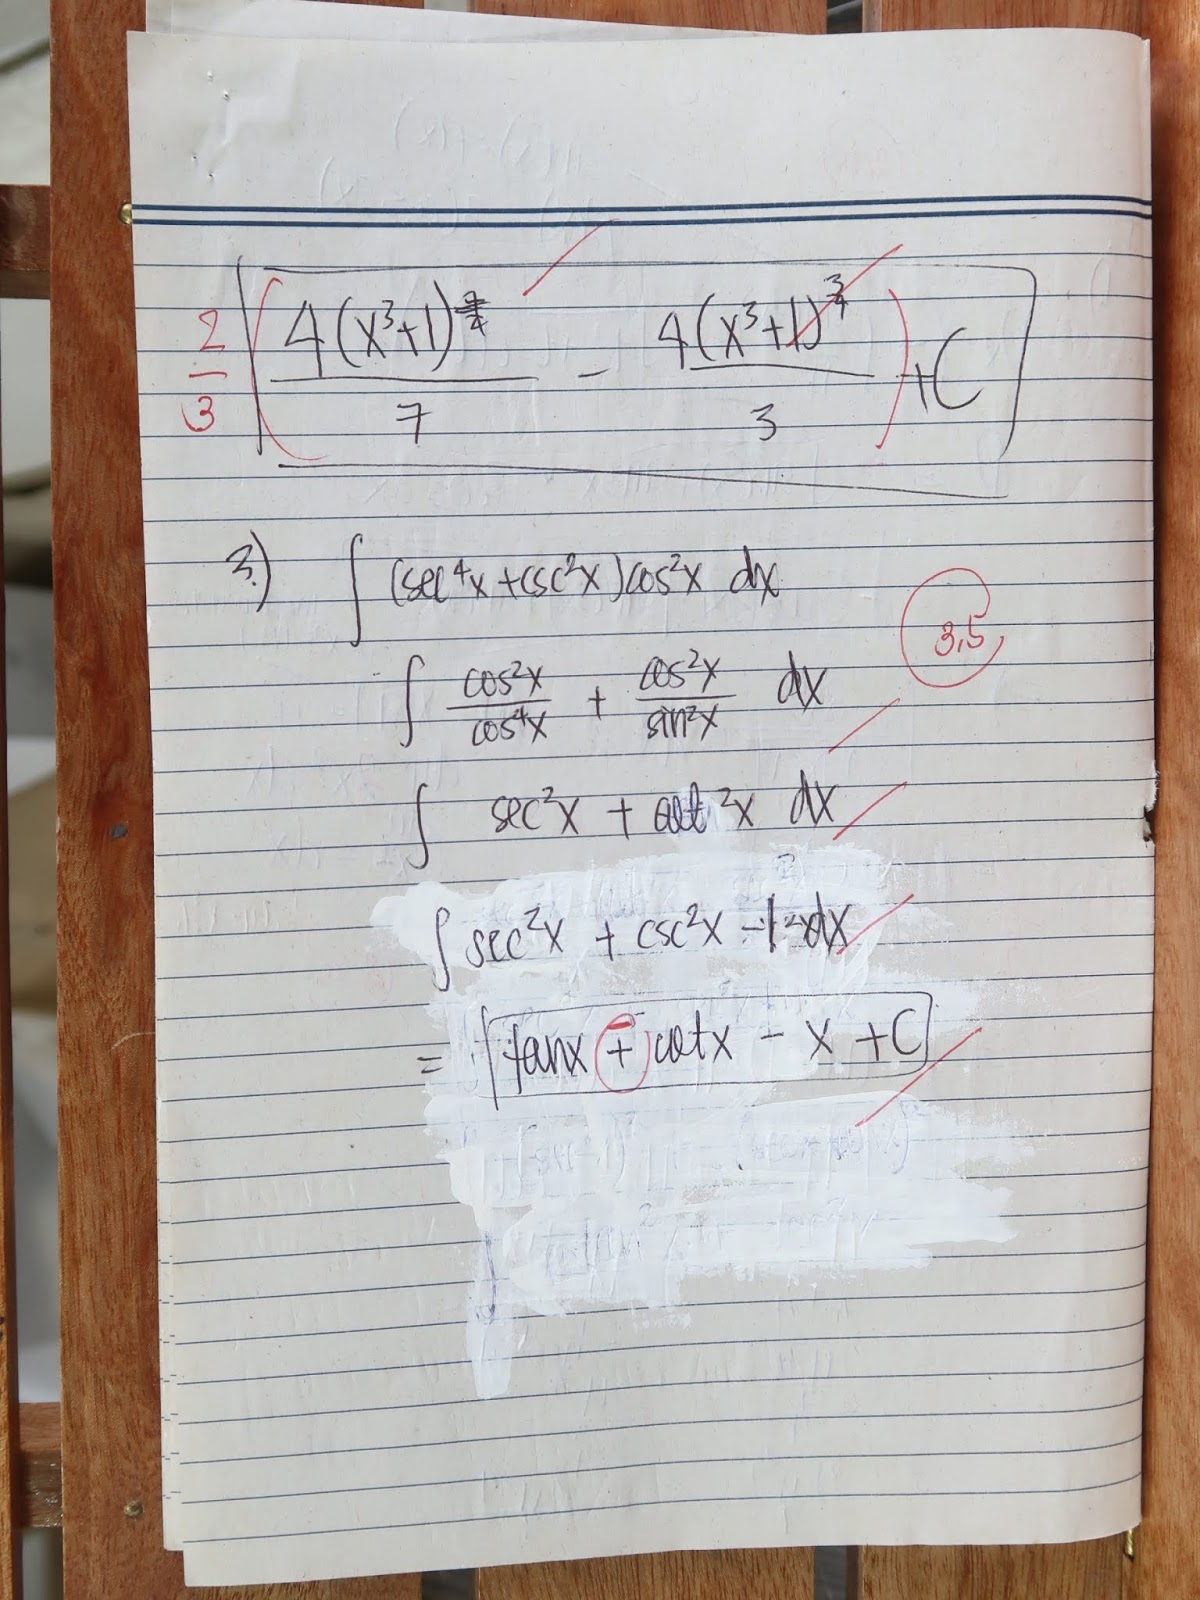 2/3 ( 4(x³+1)^(7/4) / 7 - 4(x³+1)^(3/4) / 3 ) +C
3.) ∫ (sec⁴x + csc²x) cos²x dx
3,5
∫ cos²x / cos⁴x + cos²x / sin²x dx
∫ sec²x + cot²x dx
∫ sec²x + csc²x - 1 dx
= tanx + cotx - x + C
−